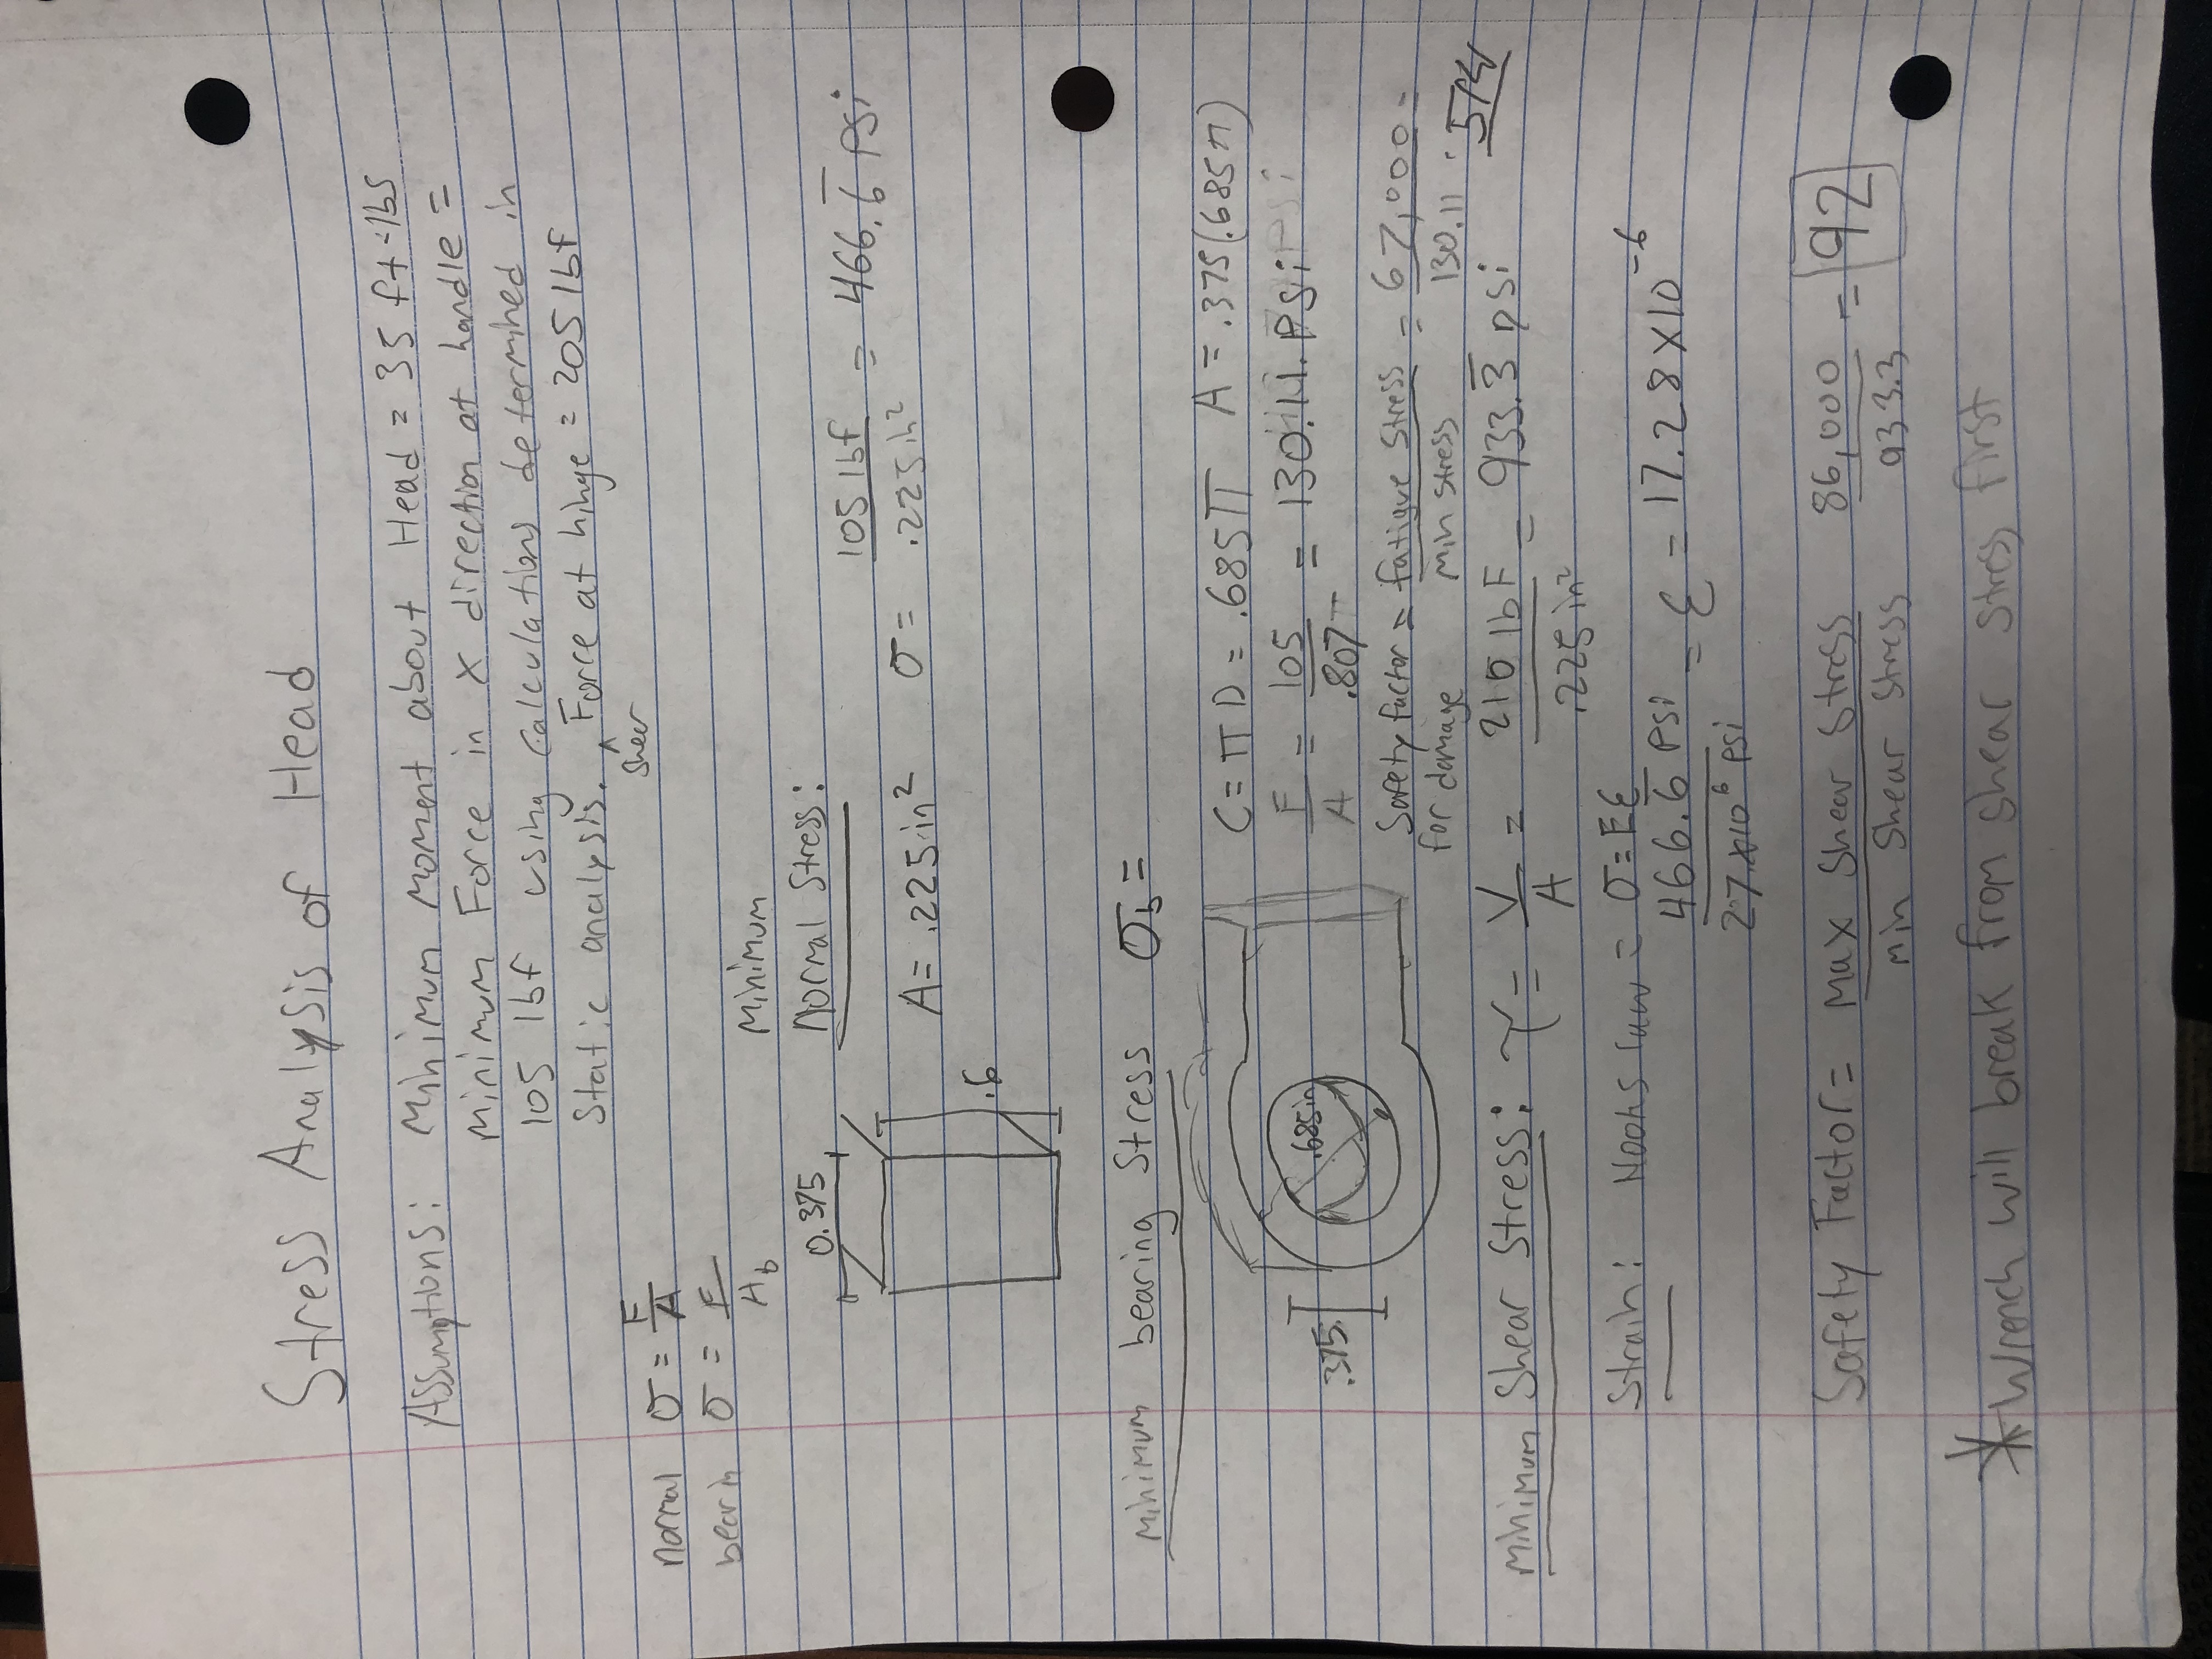 Stress Analysis of Head
Assumptions: Minimum moment about Head = 35 ft-lbs
Minimum Force in x direction at handle =
105 lbf using calculations determined in
Static analysis. Force at hinge = 205 lbf
^ Shear
Normal σ = F/A
bearin σ = F/A_b
Minimum
Normal Stress:
0.375
.6
A = .225in² σ = 105 lbf/.225in² = 466.6̅ psi
Minimum bearing Stress σ_b =
.375
.685in
C = πD = .685π A = .375(.685π)
F/A = 105/.807 = 130.11 psi
Safety factor = fatigue stress/min stress = 67,000/130.11 =
for damage
Minimum Shear Stress: τ = V/A = 210 lbF/.225in² = 933.3̅ psi
Strain: σ = Eε
466.6̅ psi/27x10⁶ psi = ε = 17.28x10⁻⁶
Safety Factor = Max Shear Stress/Min Shear Stress 86,000/933.3 = 92
*Wrench will break from shear stress first